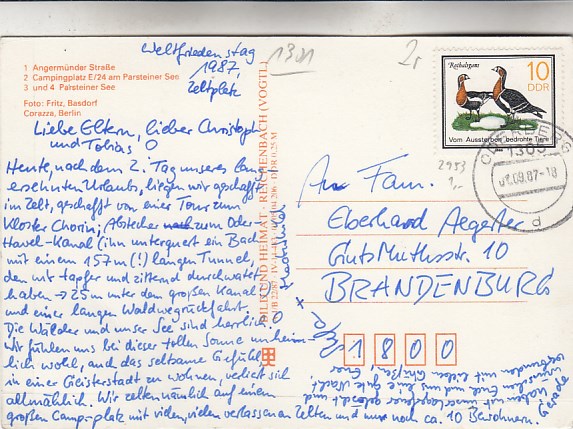 1 Angermünder Straße
2 Campingplatz E/24 am Parsteiner See
3 und 4 Parsteiner See
Foto: Fritz, Basdorf
Corazza, Berlin
Weltfriedenstag
1987,
Zeltplatz
1301
2,-
Liebe Eltern, lieber Christoph
und Tobias
Heute, nach dem 2. Tag unseres lang
ersehnten Urlaubs, liegen wir geschafft
im Zelt, geschafft von einer Tour zum
Kloster Chorin, Abstecher zum Oder-
Havel-Kanal (ihn unterquert ein Bach
mit einem 157m (!) langen Tunnel,
den wir tapfer und zitternd durchwatet
haben → 25m unter dem großen Kanal
und einer langen Waldwegrückfahrt.
Die Wälder und unser See sind herrlich
Wir fühlen uns bei dieser tollen Sonne unheim-
lich wohl, auch das seltsame Gefühl
in einer Geisterstadt zu wohnen, verliert sich
allmählich. Wir zelten nämlich auf einem
großen Camp-platz mit vielen, vielen verlassenen Zelten und nur noch ca. 10 Bewohnern.
BILD UND HEIMAT REICHENBACH (VOGTL)
Rothalsgans
10
DDR
Vom Aussterben bedrohte Tiere
ODERBERG
1305
09.87-18
d
2953
1,-
An Fam.
Eberhard Aegerter
GutsMuthsstr. 10
BRANDENBURG
1800